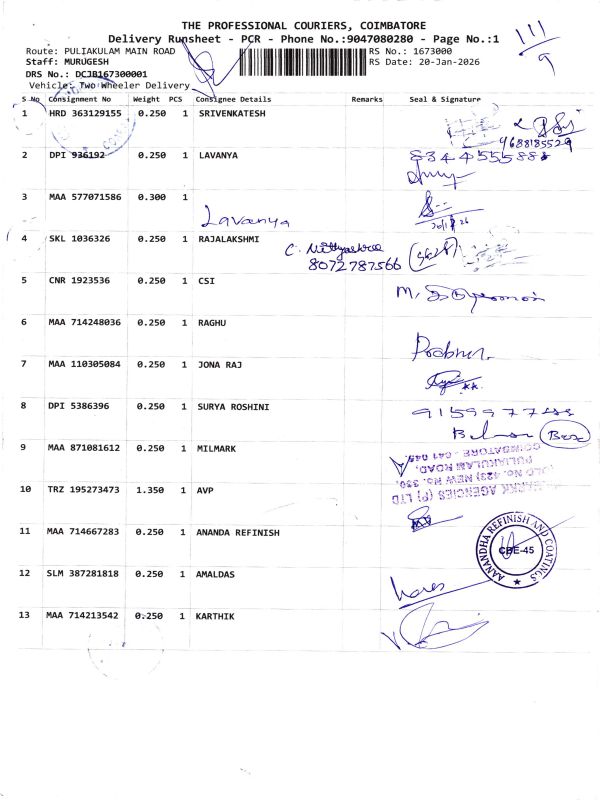 THE PROFESSIONAL COURIERS, COIMBATORE
Delivery Runsheet - PCR - Phone No.:9047080280 - Page No.:1
111/9
Route: PULIAKULAM MAIN ROAD
RS No.: 1673000
Staff: MURUGESH
RS Date: 20-Jan-2026
DRS No.: DCJB167300001
Vehicle: Two Wheeler Delivery
S No Consignment No Weight PCS Consignee Details Remarks Seal & Signature
1 HRD 363129155 0.250 1 SRIVENKATESH
9688185529
2 DPI 936192 0.250 1 LAVANYA 8344555888
3 MAA 577071586 0.300 1
Lavanya
4 SKL 1036326 0.250 1 RAJALAKSHMI
8072787566
5 CNR 1923536 0.250 1 CSI
6 MAA 714248036 0.250 1 RAGHU
7 MAA 110305084 0.250 1 JONA RAJ
8 DPI 5386396 0.250 1 SURYA ROSHINI
9 MAA 871081612 0.250 1 MILMARK
AGENCIES (P) LTD
OLD No. 423) NEW No. 330,
PULIAKULAM ROAD,
COIMBATORE - 641 045.
10 TRZ 195273473 1.350 1 AVP
11 MAA 714667283 0.250 1 ANANDA REFINISH
AANANDHA REFINISH AND COATINGS
CBE-45
12 SLM 387281818 0.250 1 AMALDAS
13 MAA 714213542 0.250 1 KARTHIK